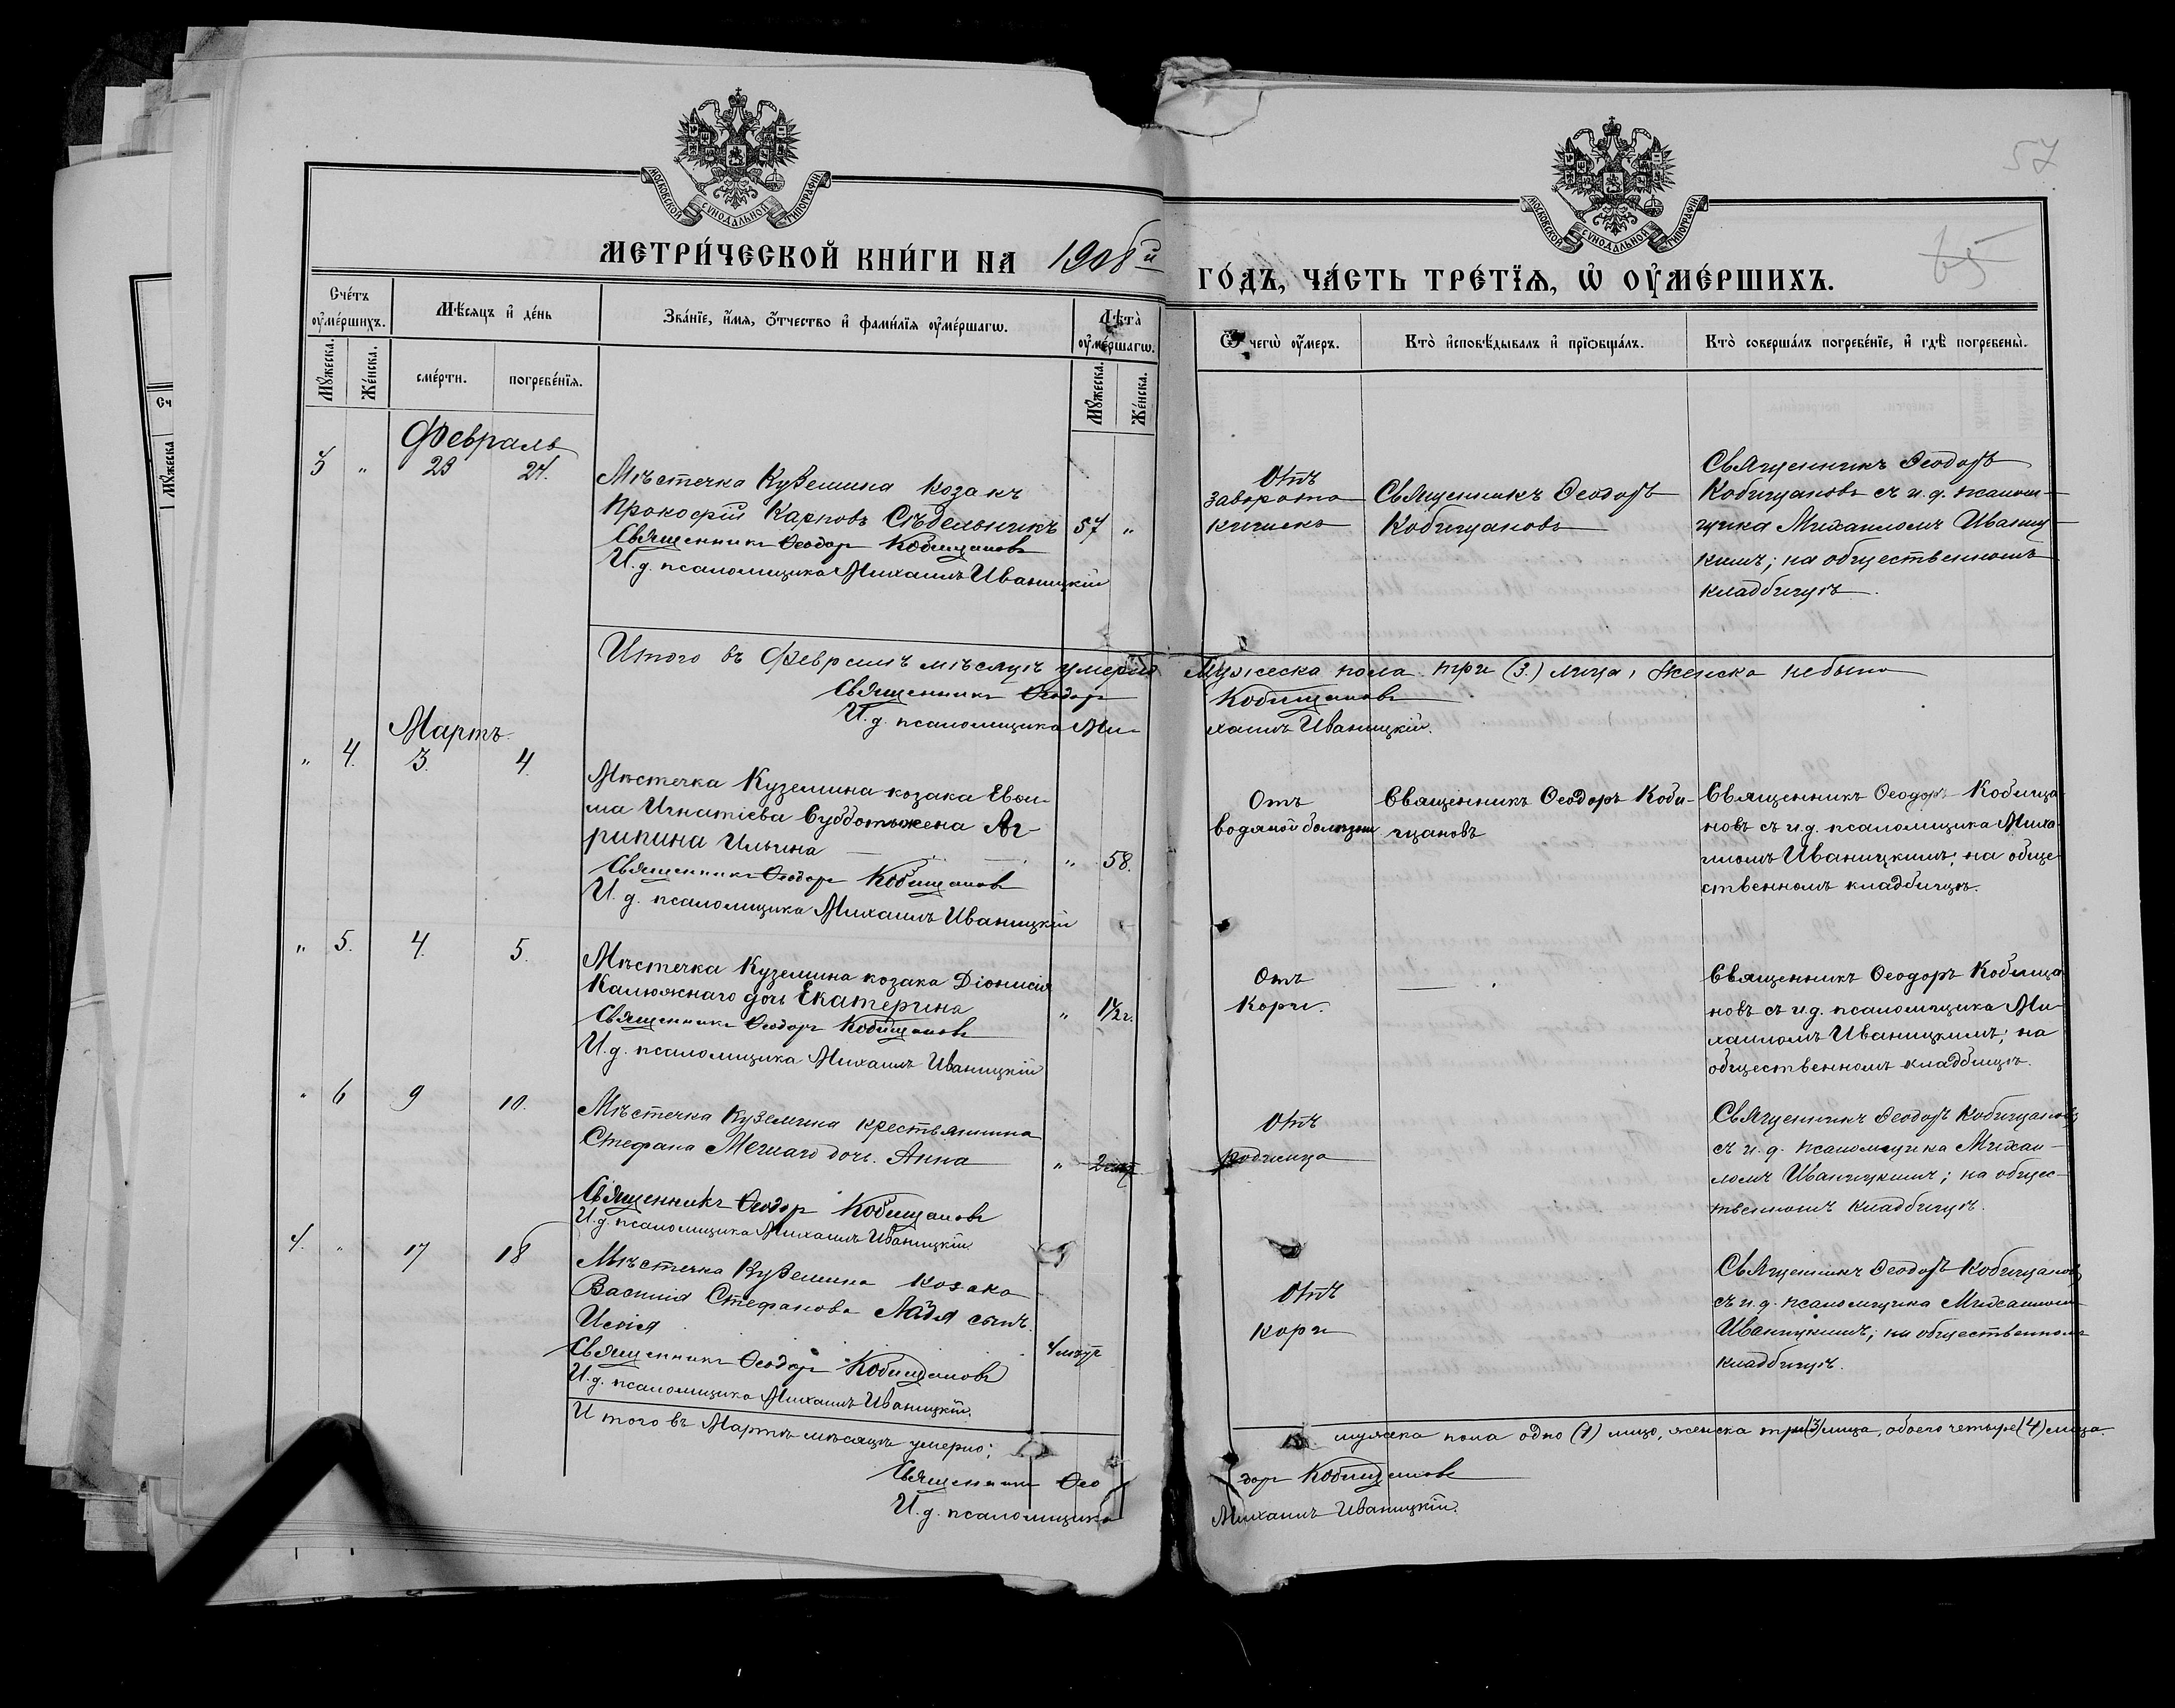 57
65
МОСКОВСКОЙ СУНОДАЛЬНОЙ ТИПОГРАФІИ
МОСКОВСКОЙ СУНОДАЛЬНОЙ ТИПОГРАФІИ
МЕТРИ́ЧЕСКОЙ КНИ́ГИ НА 1908й
ГО́ДЪ, ЧА́СТЬ ТРЕ́ТЇѦ, Ѡ҆ ОУ҆МЕ́РШИХЪ.
Сче́тъ оу҆ме́ршихъ.
Мѣ́сяцъ и҆ де́нь
Зва́нїе, и҆́мѧ, ѻ҆́тчество и҆ фами́лїѧ оу҆ме́ршагѡ.
Лѣ́та оу҆ме́ршагѡ.
Ѿ чегѡ̀ оу҆́меръ.
Кто̀ и҆сповѣ́дывалъ и҆ прїѻбща́лъ.
Кто̀ соверша́лъ погребе́нїе, и҆ гдѣ̀ погребены̀.
Мꙋ́жеска.
Же́нска.
сме́рти.
погребе́нїѧ.
Мꙋ́жеска.
Же́нска.
Февраль
3 " 23 24.
Мѣстечка Куземина козакъ
Прокофій Карповъ Сѣдельникъ 57 "
Священникъ Ѳеодоръ Кобищановъ
И. д. псаломщика Михаилъ Иваницкій
Отъ
заворота
кишекъ
Священникъ Ѳеодоръ
Кобищановъ
Священникъ Ѳеодоръ
Кобищановъ съ и. д. псалом-
щика Михаиломъ Иваниц-
кимъ; на общественномъ
кладбищѣ.
Итого въ Февралѣ мѣсяцѣ умерло Мужеска пола три (3.) лица, Женска небыло
Священникъ Ѳеодоръ Кобищановъ
И. д. псаломщика Михаилъ Иваницкій.
Мартъ
" 4. 3. 4.
Мѣстечка Куземина козака Евѳи-
ма Игнатіева жена Аг-
рипина Ильина " 58.
Священникъ Ѳеодоръ Кобищановъ
И. д. псаломщика Михаилъ Иваницкій
Отъ
водяной болезни
Священникъ Ѳеодоръ Коби-
щановъ
Священникъ Ѳеодоръ Кобища
новъ съ и.д. псаломщика Миха
иломъ Иваницкимъ; на обще
ственномъ кладбищѣ.
" 5. 4. 5.
Мѣстечка Куземина козака Діонисія
Калюжнаго дочь Екатерина " 1½ г.
Священникъ Ѳеодоръ Кобищановъ
И. д. псаломщика Михаилъ Иваницкій
Отъ
Кори.
Священникъ Ѳеодоръ Кобища
новъ съ и.д. псаломщика Ми-
хаиломъ Иваницкимъ; на
общественномъ кладбищѣ.
" 6 9 10.
Мѣстечка Куземина крестьянина
Стефана дочь Анна "
Священникъ Ѳеодоръ Кобищановъ
И. д. псаломщика Михаилъ Иваницкій
Отъ
родимца
Священникъ Ѳеодоръ Кобищановъ
съ и. д. псаломщика Михаи-
ломъ Иваницкимъ; на общес-
твенномъ кладбищѣ.
4. " 17 18
Мѣстечка Куземина козака
Василія Стефанова сынъ
Исаія
Священникъ Ѳеодоръ Кобищановъ
И. д. псаломщика Михаилъ Иваницкій.
Отъ
кори
Священникъ Ѳеодоръ Кобищановъ
съ и. д. псаломщика Михаиломъ
Иваницкимъ; на общественномъ
кладбищѣ.
Итого въ Мартѣ мѣсяцѣ умерло: мужска пола одно (1) лицо, женска три(3)лица, обоего четыре(4)лица.
Священникъ Ѳеодоръ Кобищановъ
И. д. псаломщика Михаилъ Иваницкій.